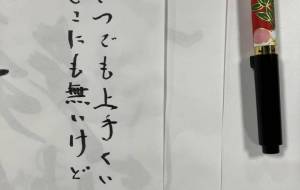 つでも上手くい
こにも無いけど